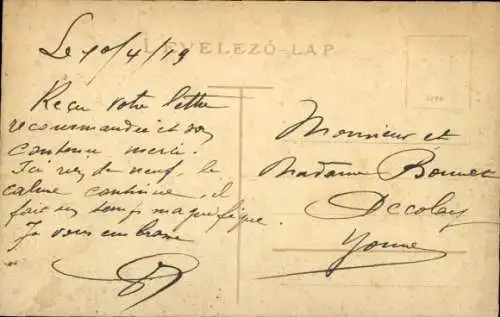 LEVELEZŐ-LAP
Le 10/4/19
Reçu votre lettre
recommandée et son
contenu merci.
Ici rien de neuf, le
calme continue, il
fait un temps magnifique.
Je vous embrasse
Monsieur et
Madame Bonnet
Yonne